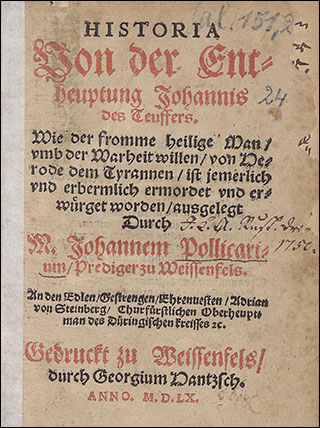 HISTORIA
Von der Ent-
heuptung Johannis
des Teuffers.
24
Wie der fromme heilige Man/
vmb der Warheit willen/ von He-
rode dem Tyrannen/ ist jemerlich
vnd erbermlich ermordet vnd er-
würget worden/ ausgelegt
Durch
M. Johannem Pollicari-
um/ Prediger zu Weissenfels.
1750.
An den Edlen/ Gestrengen/ Ehrnuesten/ Adrian
von Steinberg/ Churfürstlichen Oberheupt-
man des Düringischen kreisses ꝛc.
Gedruckt zu Weissenfels/
durch Georgium Hantzsch.
ANNO. M. D. LX.